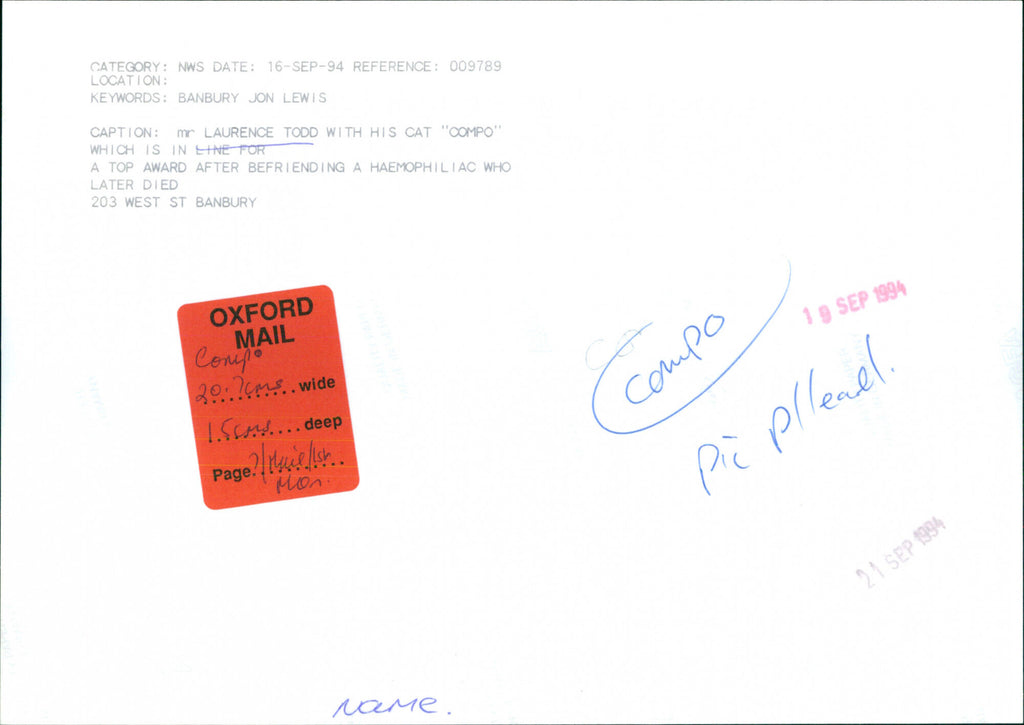 CATEGORY: NWS DATE: 16-SEP-94 REFERENCE: 009789
LOCATION:
KEYWORDS: BANBURY JON LEWIS
CAPTION: mr LAURENCE TODD WITH HIS CAT "COMPO"
WHICH IS IN LINE FOR
A TOP AWARD AFTER BEFRIENDING A HAEMOPHILIAC WHO
LATER DIED
203 WEST ST BANBURY
OXFORD
MAIL
Compo
20.7cms wide
15cms deep
Page 7/Mail/1st
Mon.
compo
19 SEP 1994
pic p/lead.
21 SEP 1994
NAME.